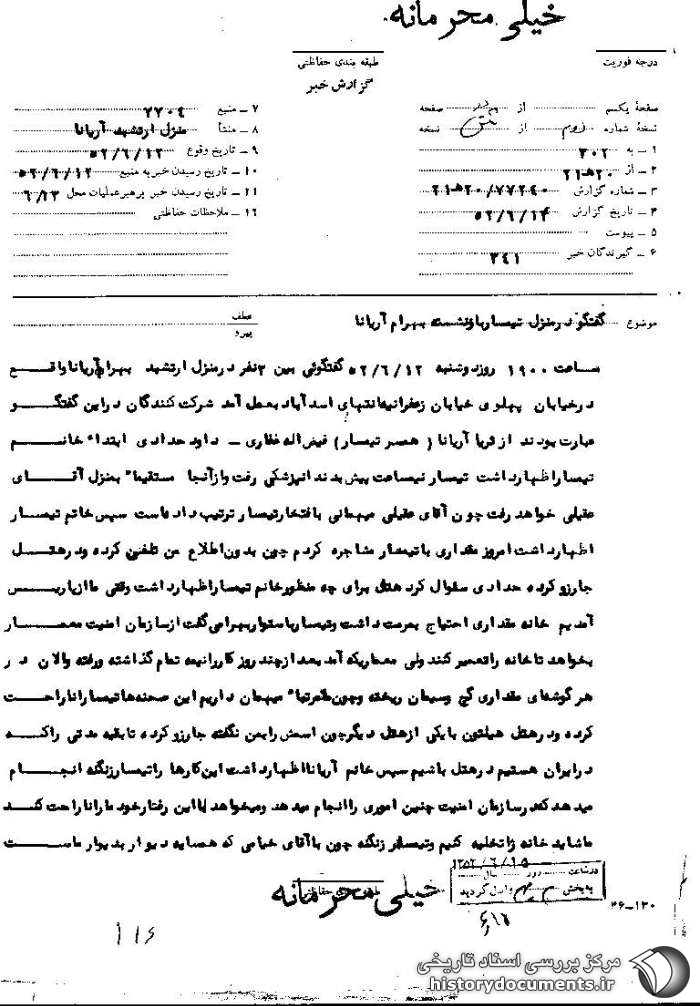 خیلی محرمانه
درجه فوریت
طبقه بندی حفاظتی
گزارش خبر
صفحه یکم از صفحه
نسخه شماره از نسخه
۱ – به ۳۰۲
۲ – از ۲۰هـ۲۱
۳ – شماره گزارش ۲۱هـ۲۰/۷۷۲۴۰
۴ – تاریخ گزارش ۵۲/۶/۱۴
۵ – پیوست
۶ – گیرندگان خبر ۳۴۱
۷ – منبع ۲۲۰۴
۸ – منشأ منزل ارتشبد آریانا
۹ – تاریخ وقوع ۵۲/۶/۱۲
۱۰ – تاریخ رسیدن خبر به منبع ۵۲/۶/۱۲
۱۱ – تاریخ رسیدن خبر برهبر عملیات محل ۶/۱۳
۱۲ – ملاحظات حفاظتی
موضوع گفتگو در منزل تیمسار بازنشسته بهرام آریانا
عطف
پیرو
ساعت ۱۹۰۰ روز دوشنبه ۵۲/۶/۱۲ گفتگوئی بین ۳نفر در منزل ارتشبد بهرام آریانا واقع
در خیابان پهلوی خیابان زعفرانیه انتهای اسدآباد بعمل آمد شرکت کنندگان در این گفتگو
عبارت بودند از ثریا آریانا ( همسر تیمسار ) فیض اله غفاری – داود حدادی ابتداء خانم
تیمسار اظهار داشت تیمسار نیمساعت پیش بدندانپزشکی رفت و از آنجا مستقیماً بمنزل آقای
عقیلی خواهد رفت چون آقای عقیلی میهمانی بافتخار تیمسار ترتیب داده است سپس خانم تیمسار
اظهار داشت امروز مقداری با تیمسار مشاجره کردم چون بدون اطلاع من تلفنی کرده و در هتل
جا رزو کرده حدادی سئوال کرد هتل برای چه منظور خانم تیمسار اظهار داشت وقتی ما از پاریس
آمدیم خانه مقداری احتیاج بمرمت داشت و تیمسار با ستوار بهرامی گفت از سازمان امنیت معمار
بخواهد تا خانه را تعمیر کنند ولی معماریکه آمد بعد از چند روز کار را نیمه تمام گذاشته و رفته و الان در
هر گوشه‌ای مقداری گچ و سیمان ریخته و چون ما مرتباً میهمان داریم این صحنه‌ها تیمسار را ناراحت
کرده و در هتل هیلتون یا یکی از هتل دیگر چون اسمش را بمن نگفته جا رزو کرده تا بقیه مدتی را که
در ایران هستیم در هتل باشیم سپس خانم آریانا اظهار داشت این کارها را تیمسار زنگنه انجام
میدهد که در سازمان امنیت چنین اموری را انجام میدهد و میخواهد با این رفتار خود ما را ناراحت کند
ما شاید خانه را تخلیه کنیم و تیمسار زنگنه چون با آقای خیامی که همسایه دیوار بدیوار ماست
۱۳۵۲/۶/۱۵
در ساعت روز سال
به بخش واصل گردید
خیلی محرمانه
۳۶–۱۳۰
۶/۱۷
۱۱۶
مرکز بررسی اسناد تاریخی
historydocuments.ir